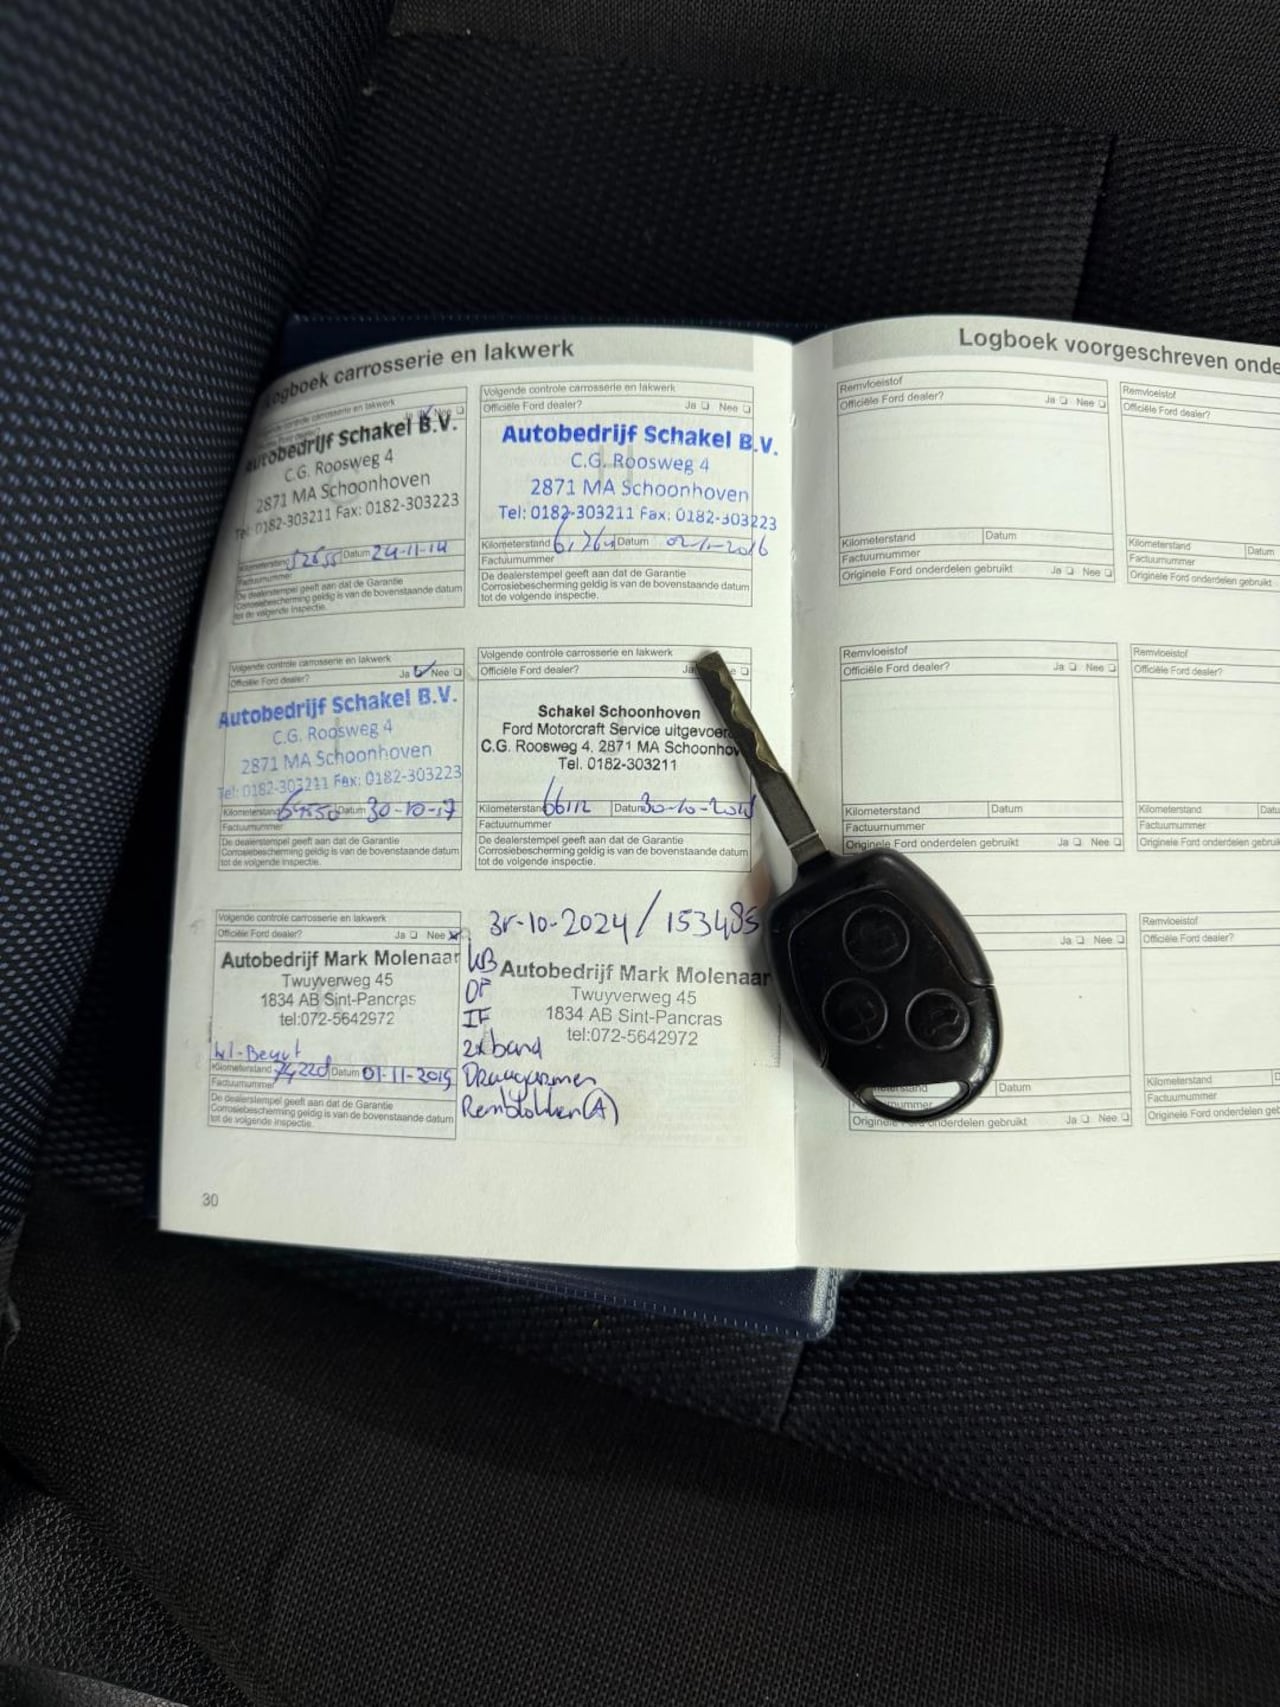 Logboek carrosserie en lakwerk
carrosserie en lakwerk
Nee
Autobedrijf Schakel B.V.
C.G. Roosweg 4
2871 MA Schoonhoven
Tel: 0182-303211 Fax: 0182-303223
Kilometerstand 52655 Datum 24-11-14
Factuurnummer
De dealerstempel geeft aan dat de Garantie
Corrosiebescherming geldig is van de bovenstaande datum
tot de volgende inspectie.
Volgende controle carrosserie en lakwerk
Officiële Ford dealer? Ja Nee
Autobedrijf Schakel B.V.
C.G. Roosweg 4
2871 MA Schoonhoven
Tel: 0182-303211 Fax: 0182-303223
Kilometerstand Datum
Factuurnummer
De dealerstempel geeft aan dat de Garantie
Corrosiebescherming geldig is van de bovenstaande datum
tot de volgende inspectie.
Volgende controle carrosserie en lakwerk
Officiële Ford dealer? Ja Nee
Autobedrijf Schakel B.V.
C.G. Roosweg 4
2871 MA Schoonhoven
Tel: 0182-303211 Fax: 0182-303223
Kilometerstand Datum 30-10-17
Factuurnummer
De dealerstempel geeft aan dat de Garantie
Corrosiebescherming geldig is van de bovenstaande datum
tot de volgende inspectie.
Volgende controle carrosserie en lakwerk
Officiële Ford dealer? Ja
Schakel Schoonhoven
Ford Motorcraft Service
C.G. Roosweg 4, 2871 MA
Tel. 0182-303211
Kilometerstand 66112 Datum 30-10-2018
Factuurnummer
De dealerstempel geeft aan dat de Garantie
Corrosiebescherming geldig is van de bovenstaande datum
tot de volgende inspectie.
Volgende controle carrosserie en lakwerk
Officiële Ford dealer? Ja Nee
Autobedrijf Mark Molenaar
Twuyverweg 45
1834 AB Sint-Pancras
tel:072-5642972
Kl-Beurt
Kilometerstand 74220 Datum 01-11-2019
Factuurnummer
De dealerstempel geeft aan dat de Garantie
Corrosiebescherming geldig is van de bovenstaande datum
tot de volgende inspectie.
31-10-2024 / 153485
Autobedrijf Mark Molenaar
Twuyverweg 45
1834 AB Sint-Pancras
tel:072-5642972
OF
IF
2x band
Draagarmen
Remblokken (A)
30
Logboek voorgeschreven onde
Remvloeistof
Officiële Ford dealer? Ja Nee
Kilometerstand Datum
Factuurnummer
Originele Ford onderdelen gebruikt Ja Nee
Remvloeistof
Officiële Ford dealer?
Kilometerstand Datum
Factuurnummer
Originele Ford onderdelen gebruikt
Remvloeistof
Officiële Ford dealer? Ja Nee
Kilometerstand Datum
Factuurnummer
Originele Ford onderdelen gebruikt Ja Nee
Remvloeistof
Officiële Ford dealer?
Kilometerstand
Factuurnummer
Originele Ford onderdelen
Ja Nee
Datum
onderdelen gebruikt Ja Nee
Remvloeistof
Officiële Ford dealer?
Kilometerstand
Factuurnummer
Originele Ford onderdelen